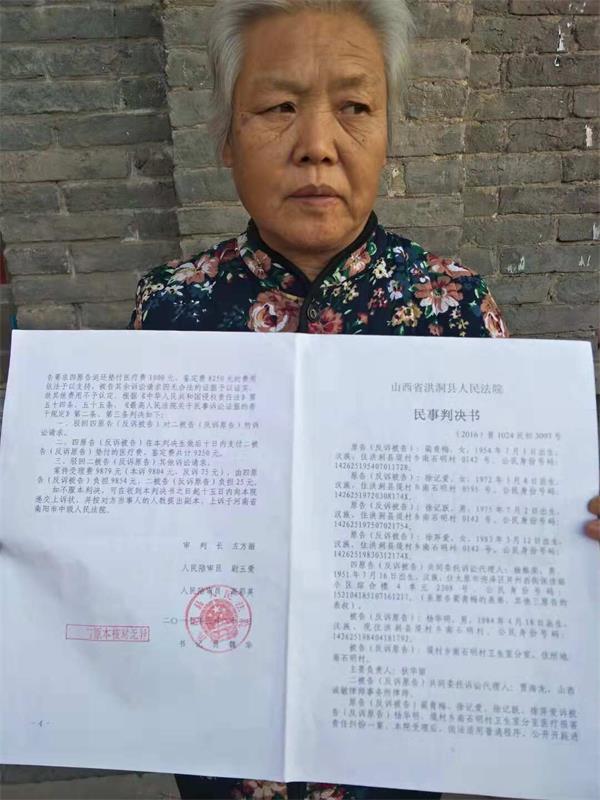 告要求四原告返还垫付医疗费1000元、鉴定费8250元的费用
依法予以支持，被告其余诉讼请求因无合法的证据予以证实，
故其他费用不予认定。根据《中华人民共和国侵权责任法》第
五十四条、五十五条，《最高人民法院关于民事诉讼证据的若
干规定》第二条、第三条判决如下：
一、驳回四原告（反诉被告）对二被告（反诉原告）的诉
讼请求。
二、四原告（反诉被告）在本判决生效后十日内支付二被
告（反诉原告）垫付的医疗费、鉴定费共计9250元。
三、驳回二被告（反诉原告）其他诉讼请求。
案件受理费9879元（本诉9804元，反诉75元），由四原
告（反诉被告）负担9854元，二被告（反诉原告）负担25元。
如不服本判决，可在收到本判决书之日起十五日内向本院
递交上诉状，并按对方当事人的人数提出副本，上诉于河南省
南阳市中级人民法院。
审 判 长 左方丽
人民陪审员 尉玉爱
人民陪审员
二〇一
本核对无异
书 记 员 魏 华
- 4 -
山西省洪洞县人民法院
民事判决书
（2016）晋1024民初3097号
原告（反诉被告）：蔺青梅，女，1954年7月1日出生，
汉族，住洪洞县堤村乡南石明村0142号。公民身份号码：
原告（反诉被告）：徐记爱，女，1972年
汉族，住洪洞县堤村乡南石明村
原告（反诉被告）：徐记跃，男，1975年7月2日出生，
汉族，住洪洞县堤村乡南石明村0142号。公民身份号码：
142625197507021754。
原告（反诉被告）：徐算爱，女，1983年3月12日出生，
汉族，住洪洞县堤村乡南石明村0142号。公民身份号码：
四原告（反诉被告）共同委托诉讼代理人：
1951年7月16日出生，汉族，住太原市
小区综合楼4单元2309号，公民身份号码：
被告（反诉原告）：杨华明，男，1984年4月18日出生，
汉族，现住洪洞县堤村乡南石明村，公民身份号码：
142625198404181792。
被告（反诉原告）：堤村乡南石明村卫生室分室，住所地：
南石明村。
主要负责人：
二被告（反诉原告）共同委托诉讼代理人：贾海龙，山西
诚敏律师事务所律师。
原告（反诉被告）蔺青梅、徐记爱、徐记跃、徐算爱诉被
告（反诉原告）杨华明、堤村乡南石明村卫生室分室医疗损害
责任纠纷一案，本院受理后，依法适用普通程序，公开开庭进